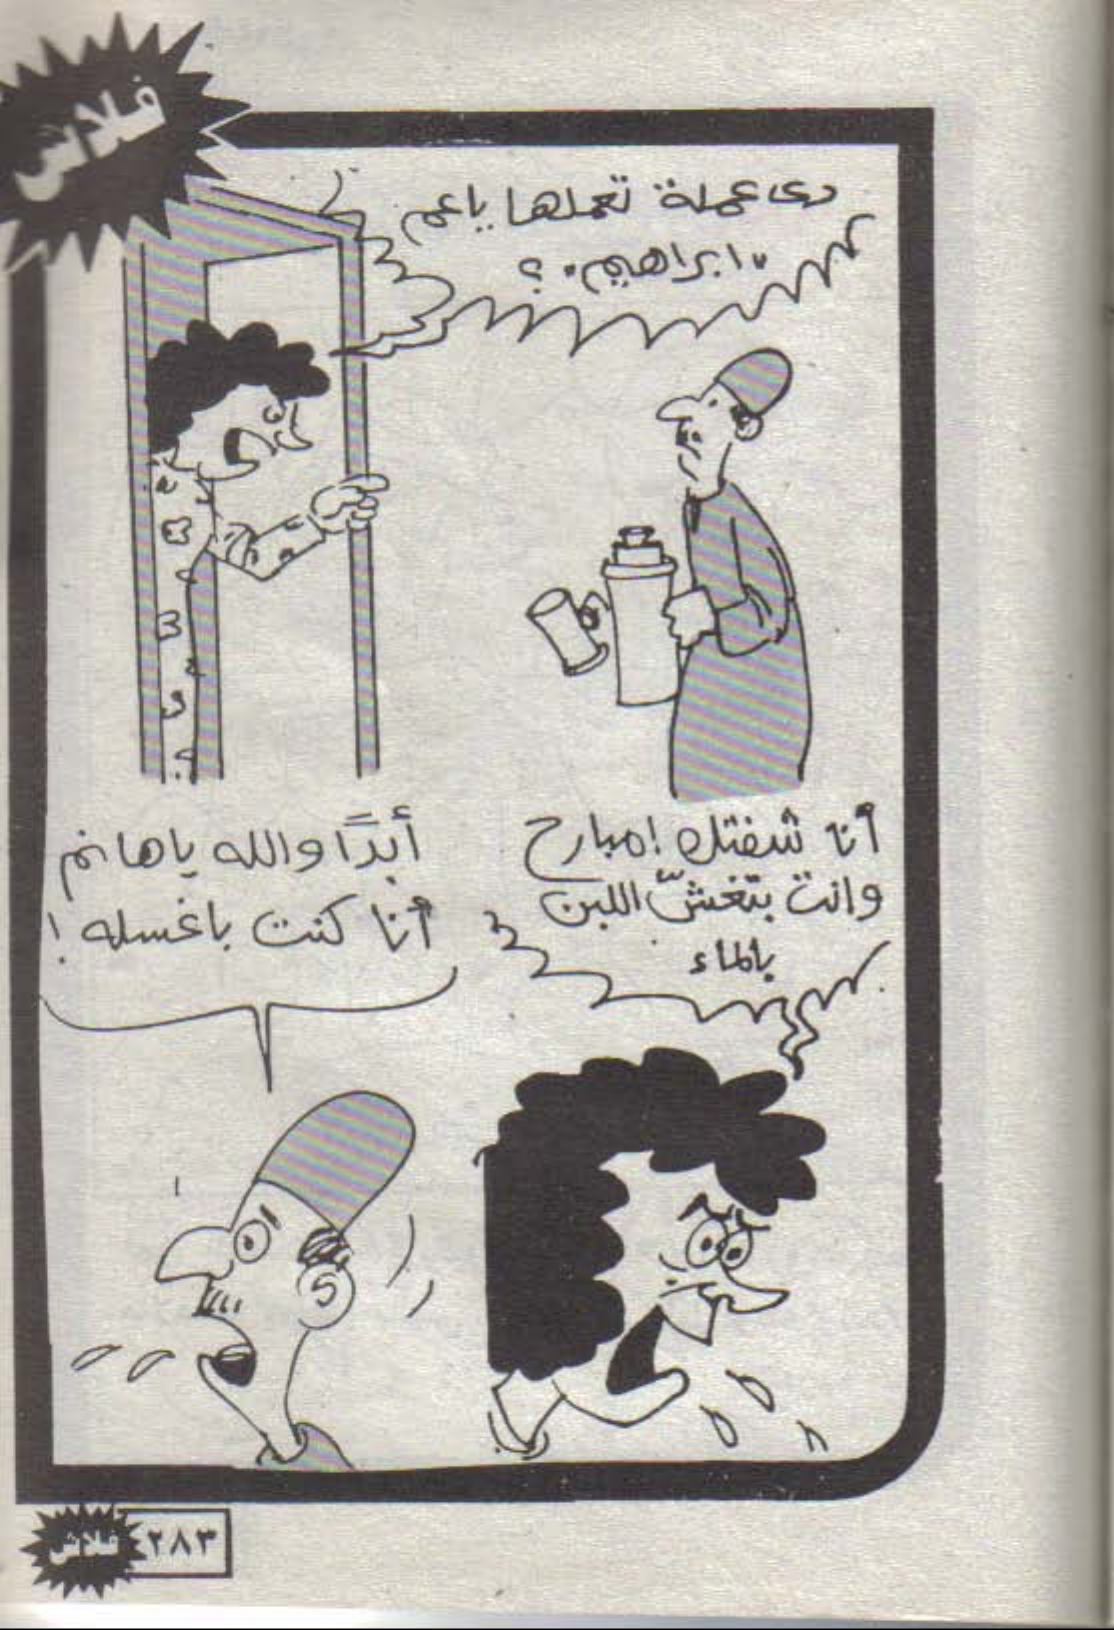 فلاش
دى عملة تعملها ياعم
"ابراهيم" ؟
أنا شفتك امبارح
وانت بتغشّ اللبن
بالماء
أبدًا والله ياهانم
أنا كنت باغسله !
فلاش ٢٨٣